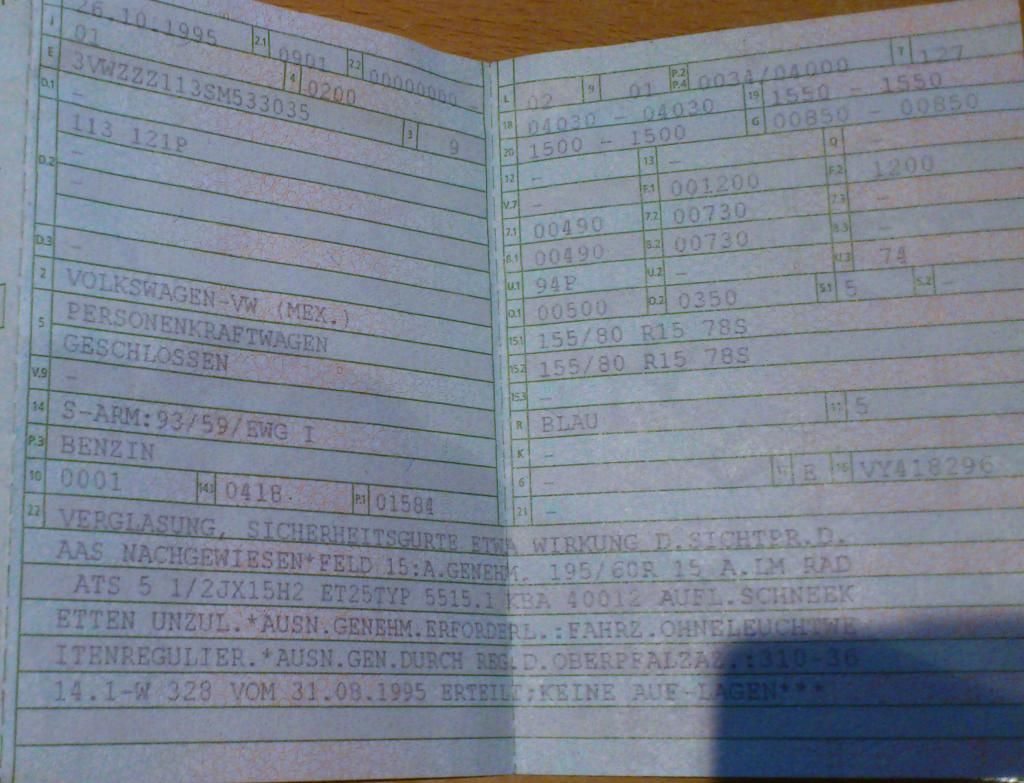 26.10.1995 2.1 0901 2.2 00000000 -
J 01 4 0200
E 3VWZZZ113SM533035 3 9
D.1 -
113 121P
D.2 -
-
D.3 -
2 VOLKSWAGEN-VW (MEX.)
5 PERSONENKRAFTWAGEN
GESCHLOSSEN
V.9 -
14 S-ARM:93/59/EWG I
P.3 BENZIN
10 0001 14.1 0418 P.1 01584
L 02 9 01 P.2 P.4 0034/04000 T 127
18 04030 - 04030 19 1550 - 1550
20 1500 - 1500 G 00850 - 00850
12 - 13 - Q -
V.7 - F.1 001200 F.2 1200
7.1 00490 7.2 00730 7.3 -
8.1 00490 8.2 00730 8.3 -
U.1 94P U.2 - U.3 74
O.1 00500 O.2 0350 S.1 5 S.2 -
15.1 155/80 R15 78S
15.2 155/80 R15 78S
15.3 -
R BLAU 11 5
K -
6 - 17 E 16 VY418296
21 -
22 VERGLASUNG, SICHERHEITSGURTE ETWA WIRKUNG D.SICHTPR.D.
AAS NACHGEWIESEN*FELD 15:A.GENEHM. 195/60R 15 A.LM RAD
ATS 5 1/2JX15H2 ET25TYP 5515.1 KBA 40012 AUFL.SCHNEEK
ETTEN UNZUL.*AUSN.GENEHM.ERFORDERL.:FAHRZ.OHNELEUCHTWE
ITENREGULIER.*AUSN.GEN.DURCH REG.D.OBERPFALZAZ.:310-36
14.1-W 328 VOM 31.08.1995 ERTEILT;KEINE AUF-LAGEN***